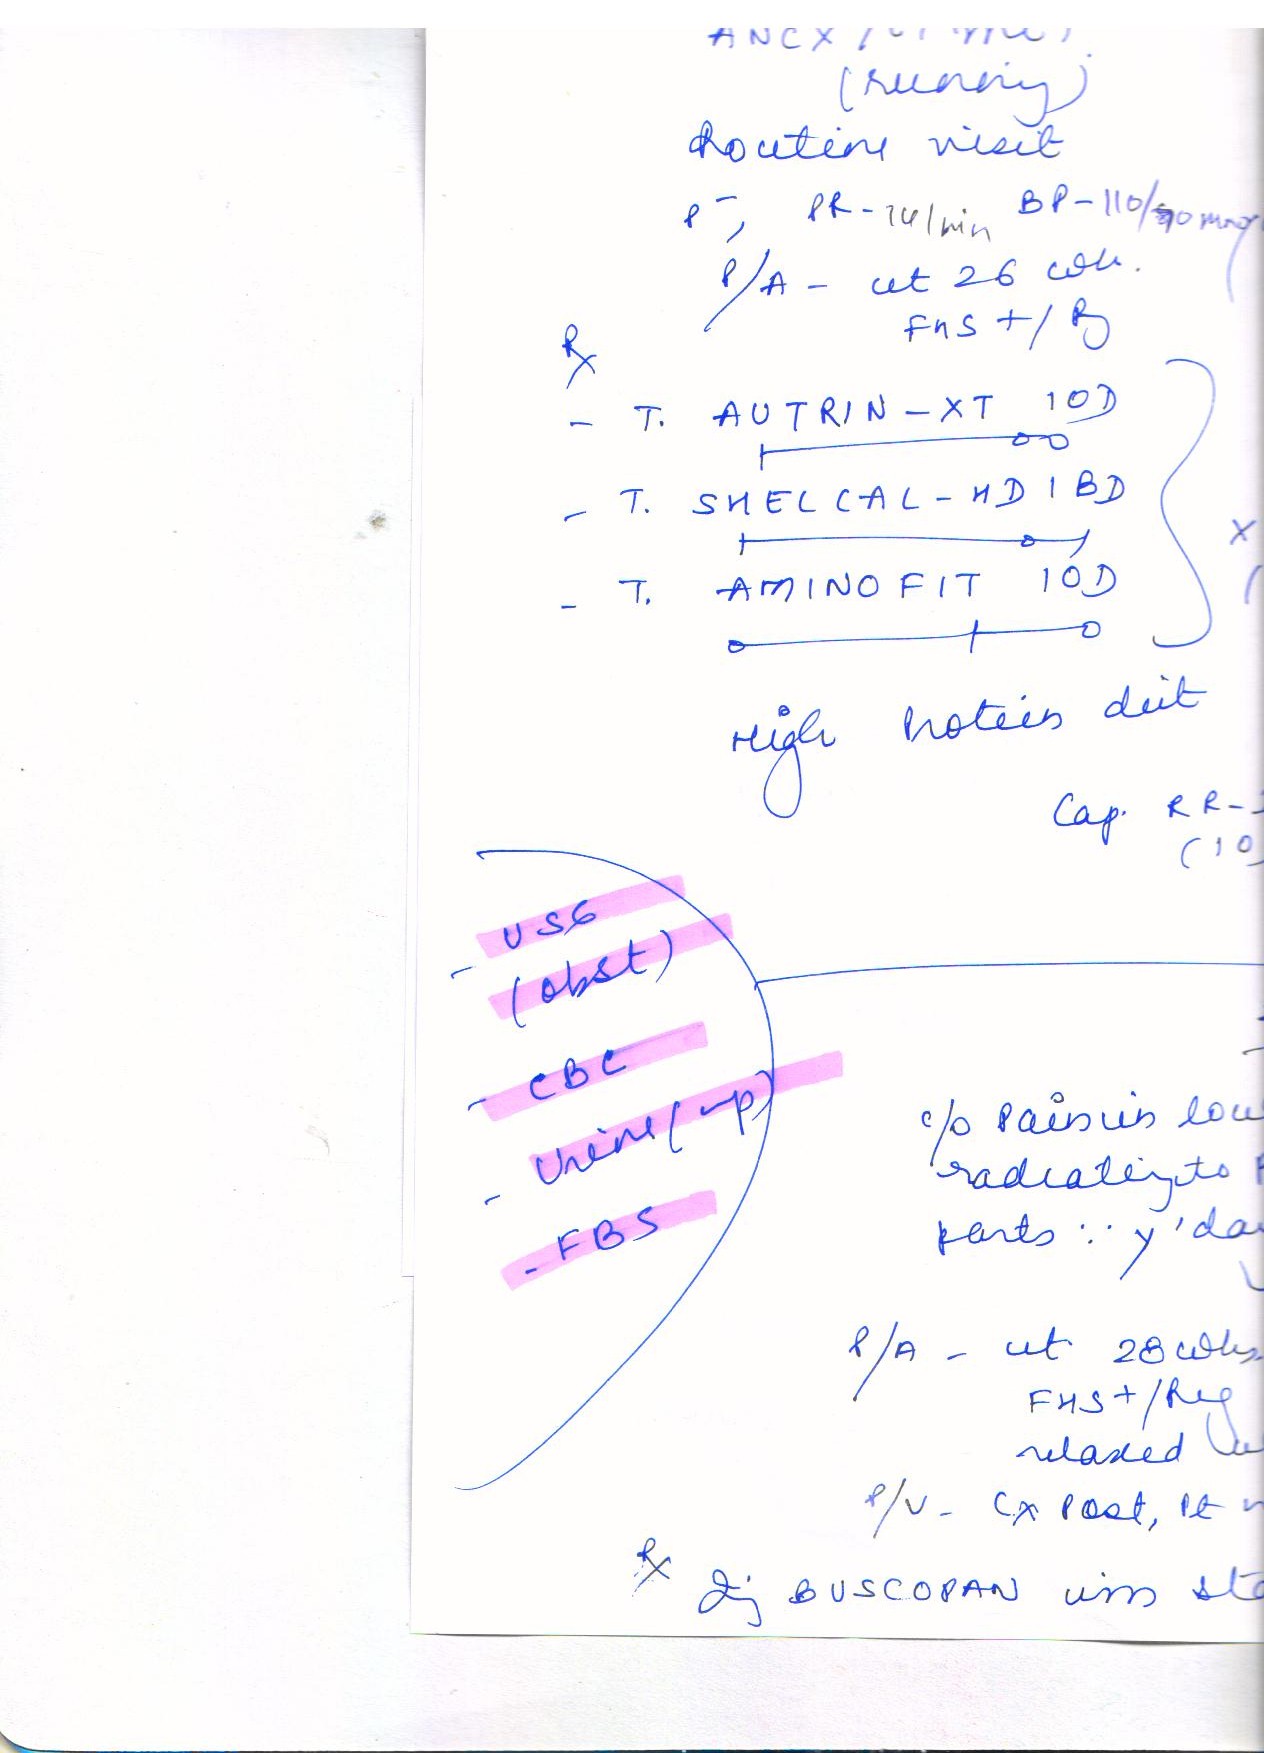 (running)
Routine visit
PR-74/min BP-110/70 mmHg
P/A - ut 26 wk.
FHS +/R
Rx
- T. AUTRIN-XT 1OD
- T. SHELCAL-HD 1 BD
- T. AMINOFIT 1OD
X
High Protein deit
Cap. RR-
(10
- USG
(obst)
- CBC
- Urine(
- FBS
c/o Pain in low
radiating to
parts ∵ y'da
P/A - ut 28 wks.
FHS +/Reg
relaxed
P/V - Cx Post,
Rx
Inj BUSCOPAN im sta